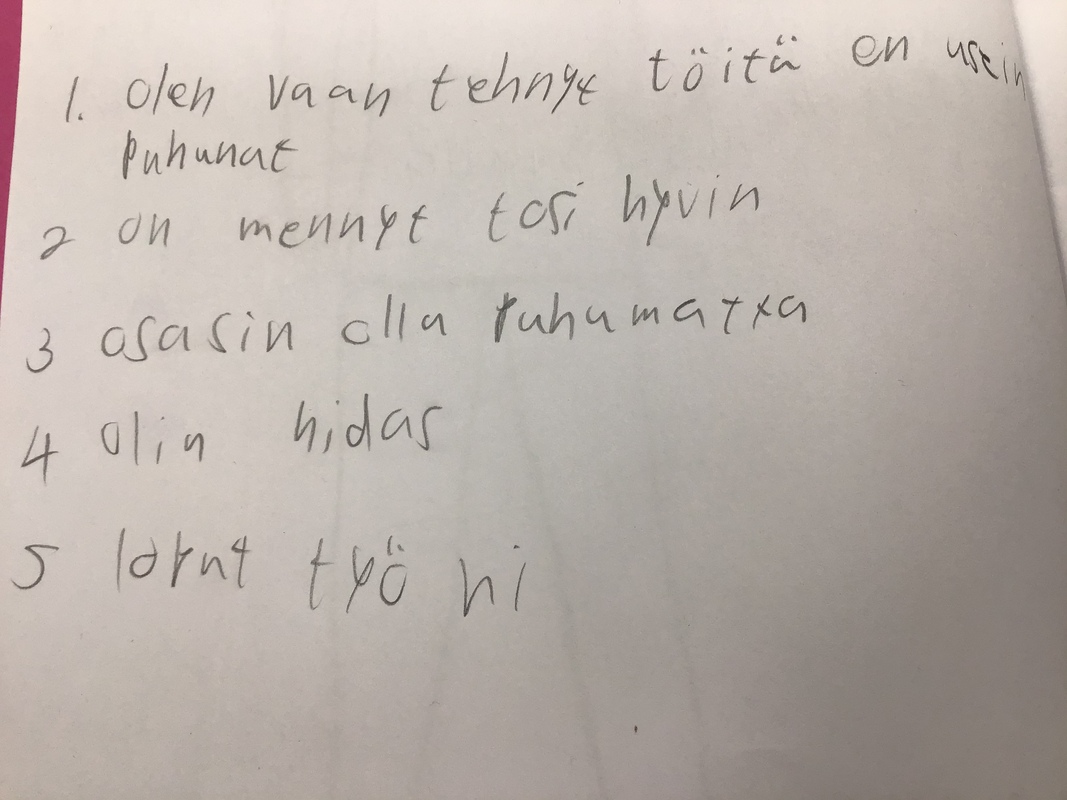 1. olen vaan tehnyt töitä en usein
puhunat
2 on mennyt tosi hyvin
3 osasin olla puhumatta
4 olin hidas
5 työ ni